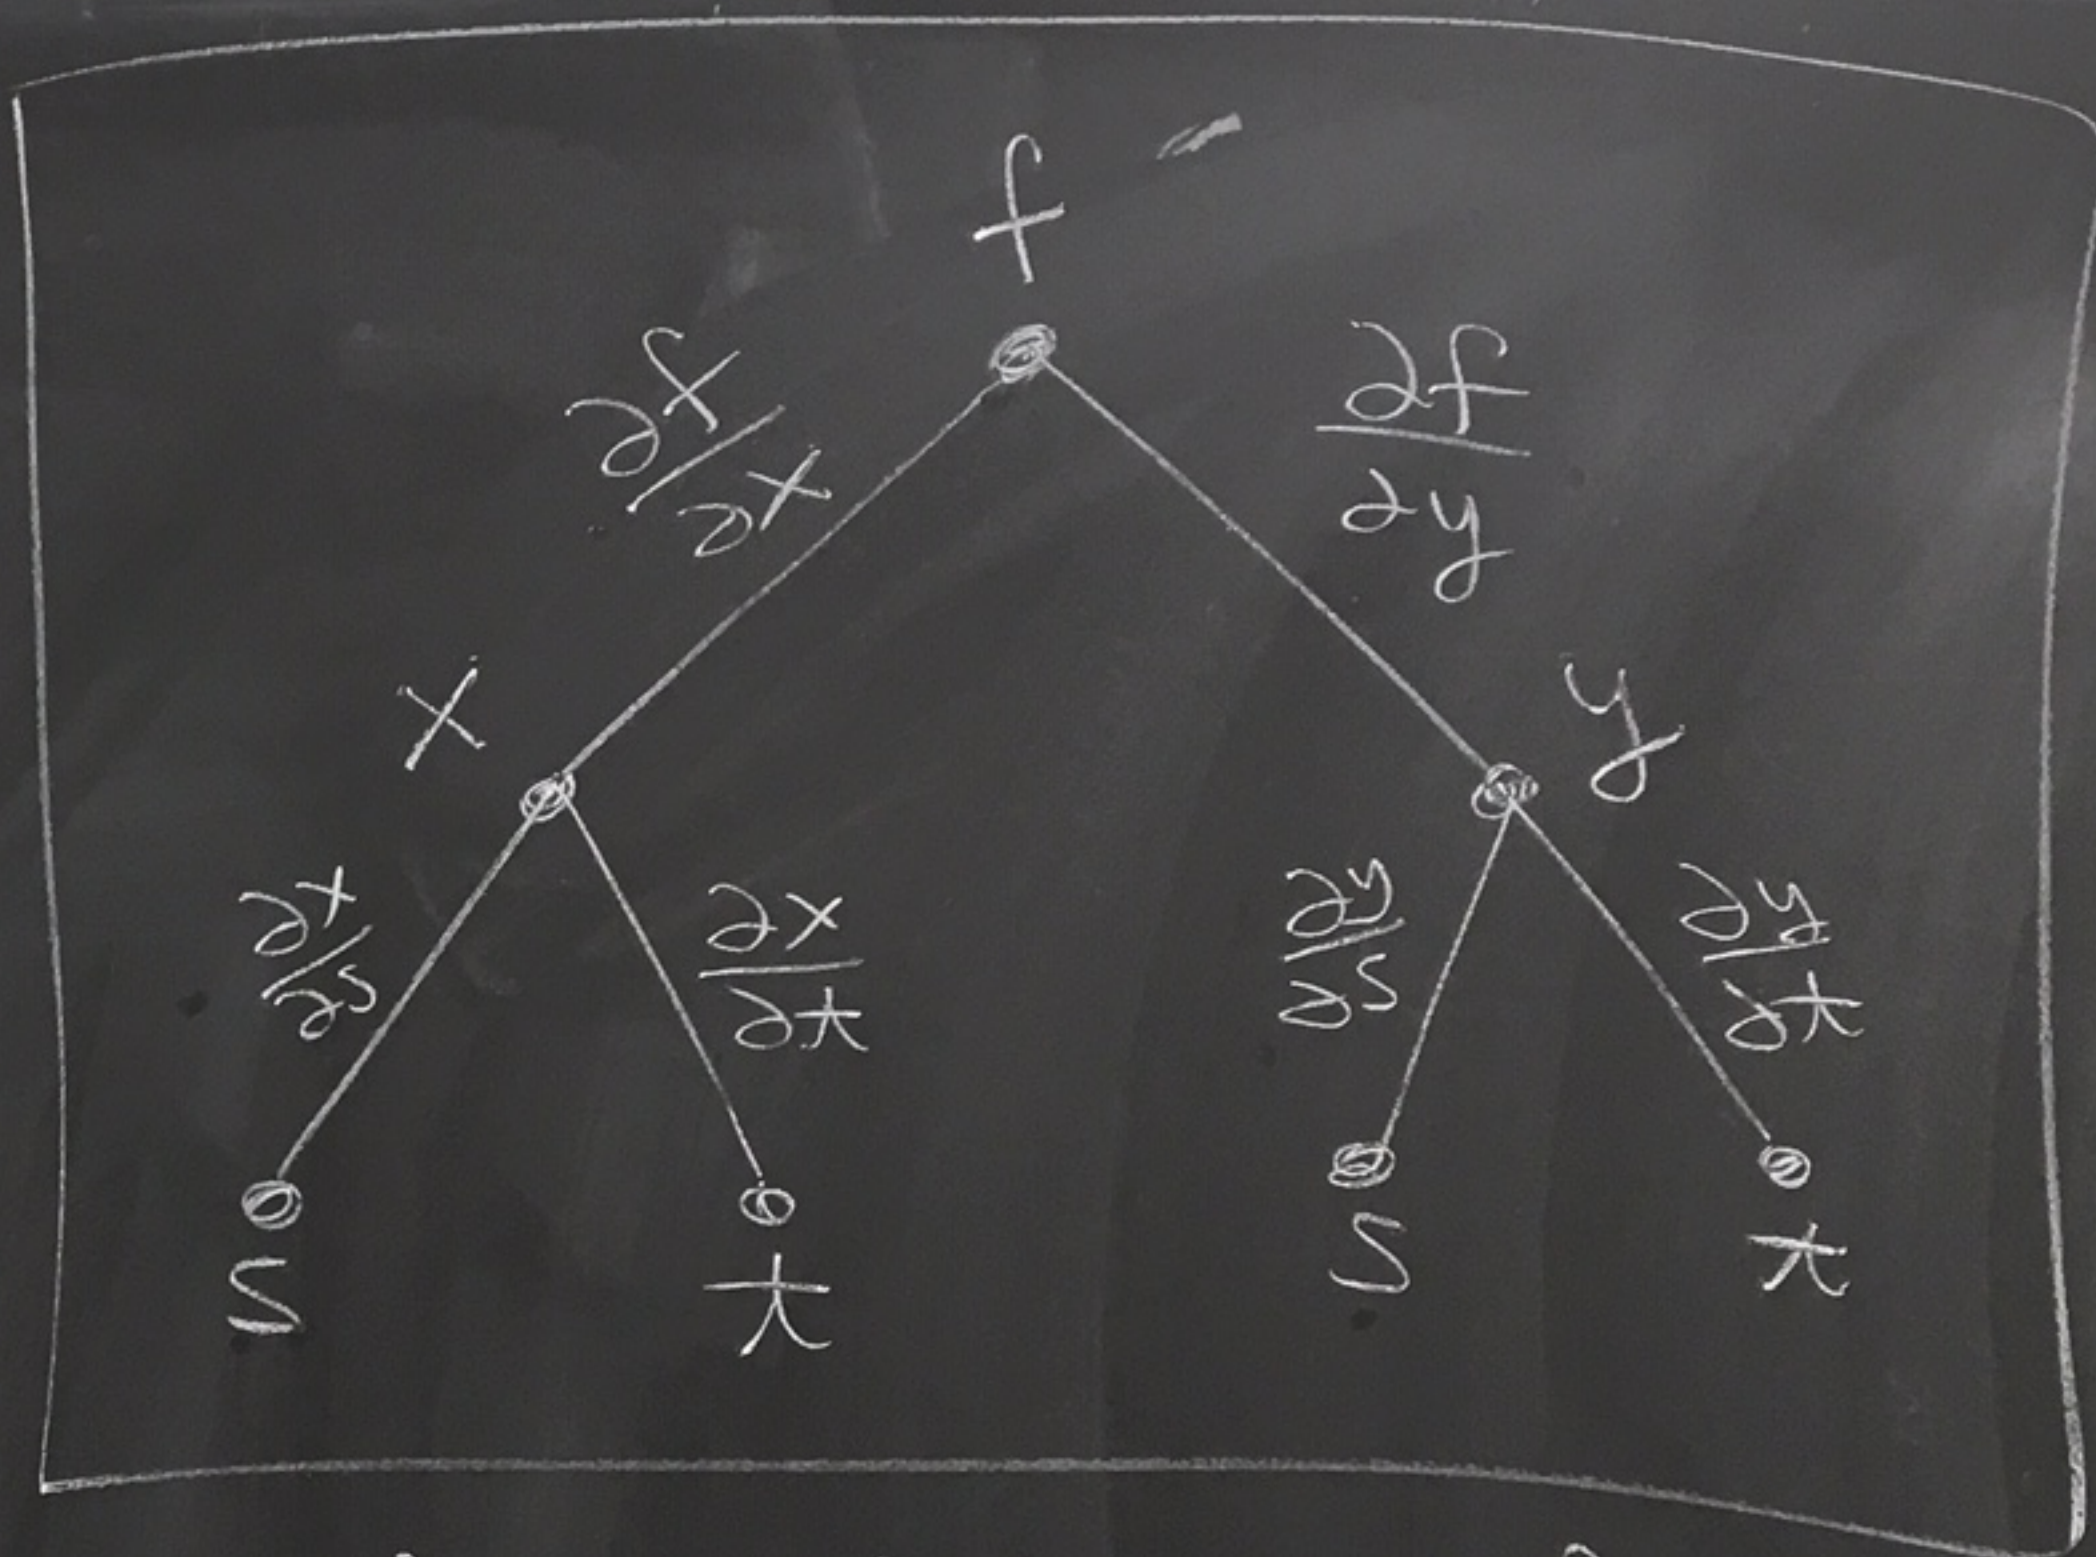 f
∂f/∂x
∂f/∂y
x
y
∂x/∂s
∂x/∂t
∂y/∂s
∂y/∂t
s
t
s
t